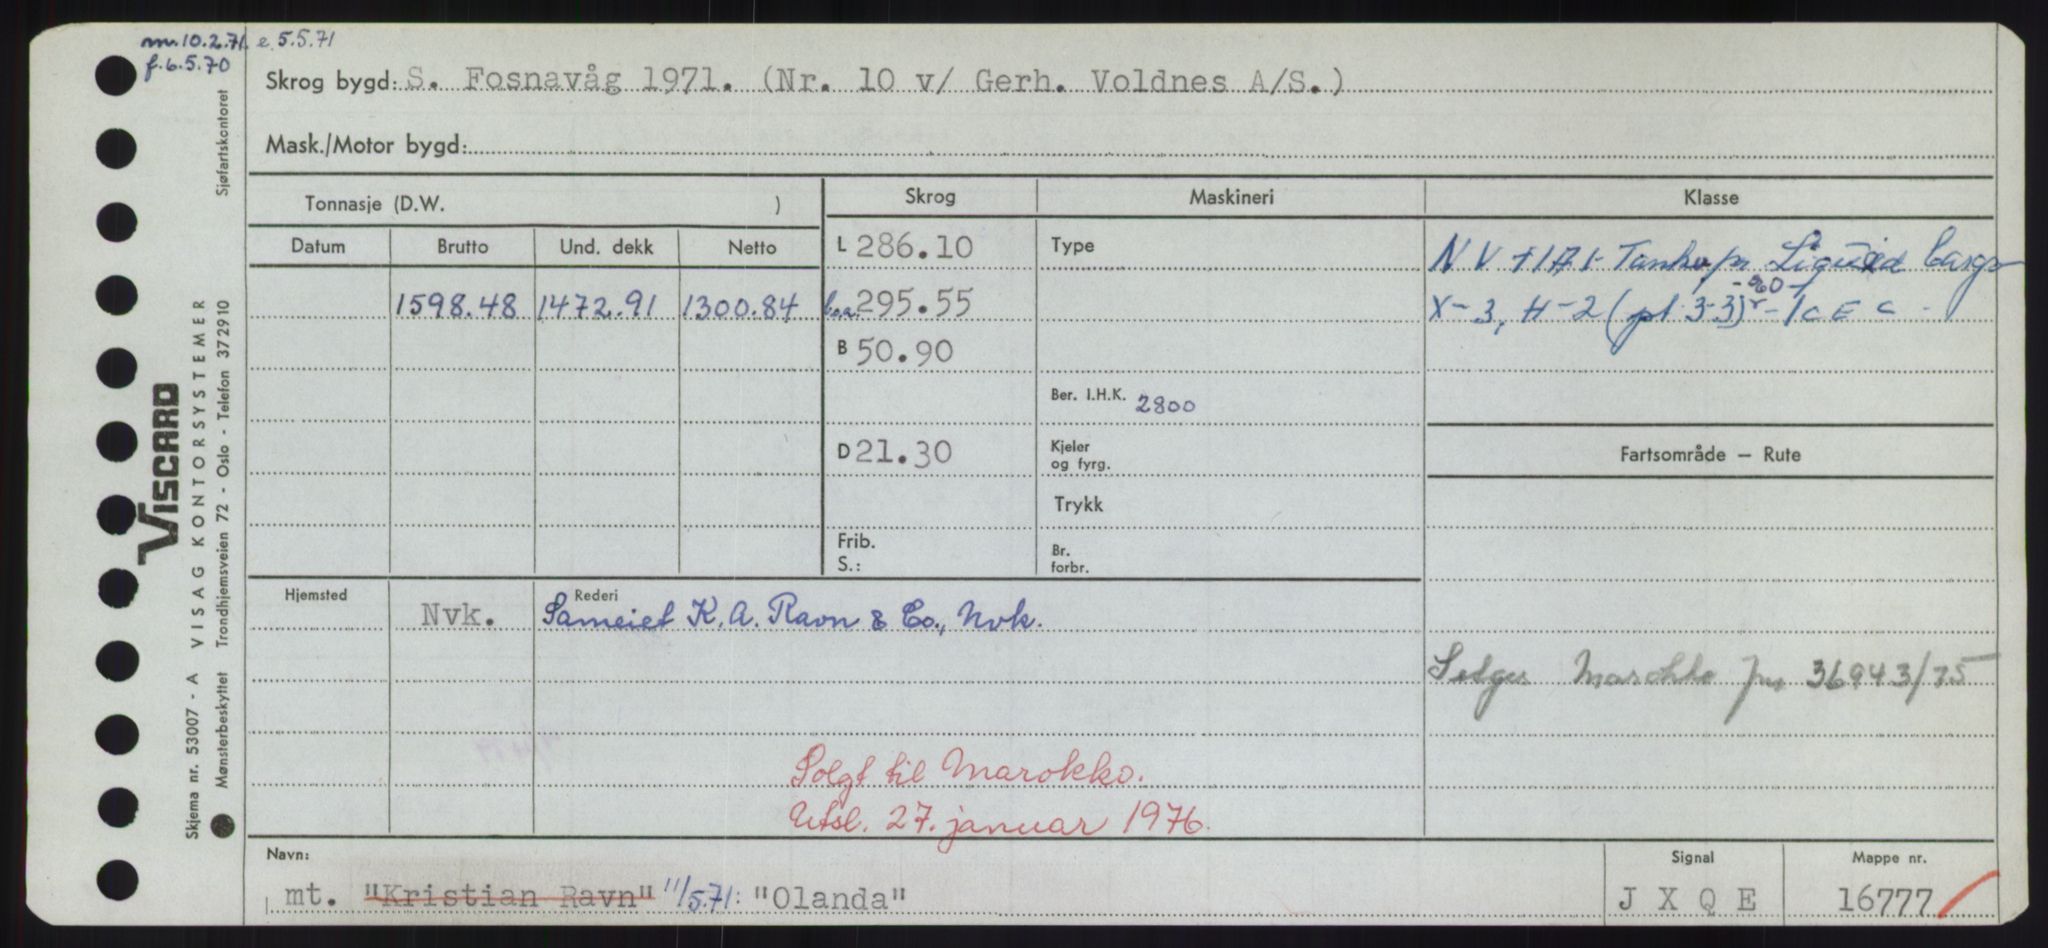 m. 10.2.71. e. 5.5.71
f. 6.5.70
Skrog bygd: S. Fosnavåg 1971. (Nr. 10 v/ Gerh. Voldnes A/S.)
Mask./Motor bygd:
Tonnasje (D.W. )
Skrog Maskineri Klasse
Datum Brutto Und. dekk Netto
L 286.10 Type
NV +1A1- Tankskip for Liquid Cargo
1598.48 1472.91 1300.84 l.o.a. 295.55
X-3, H-2 (pt 3-3) - ICE C
B 50.90
Ber. I.H.K. 2800
D 21.30 Kjeler og fyrg.
Fartsområde — Rute
Trykk
Frib.
S.:
Br. forbr.
Hjemsted Rederi
Nvk. Sameiet K. A. Ravn & Co., Nvk.
Selges Marokko 36943/75
Solgt til Marokko.
Utsl. 27. januar 1976.
Navn: Signal Mappe nr.
mt. "Kristian Ravn" 11/5.71: "Olanda" J X Q E 16777
VISCARD
VISAG KONTORSYSTEMER
Skjema nr. 53007 - A
Mønsterbeskyttet Trondhjemsveien 72 - Oslo - Telefon 372910 Sjøfartskontoret